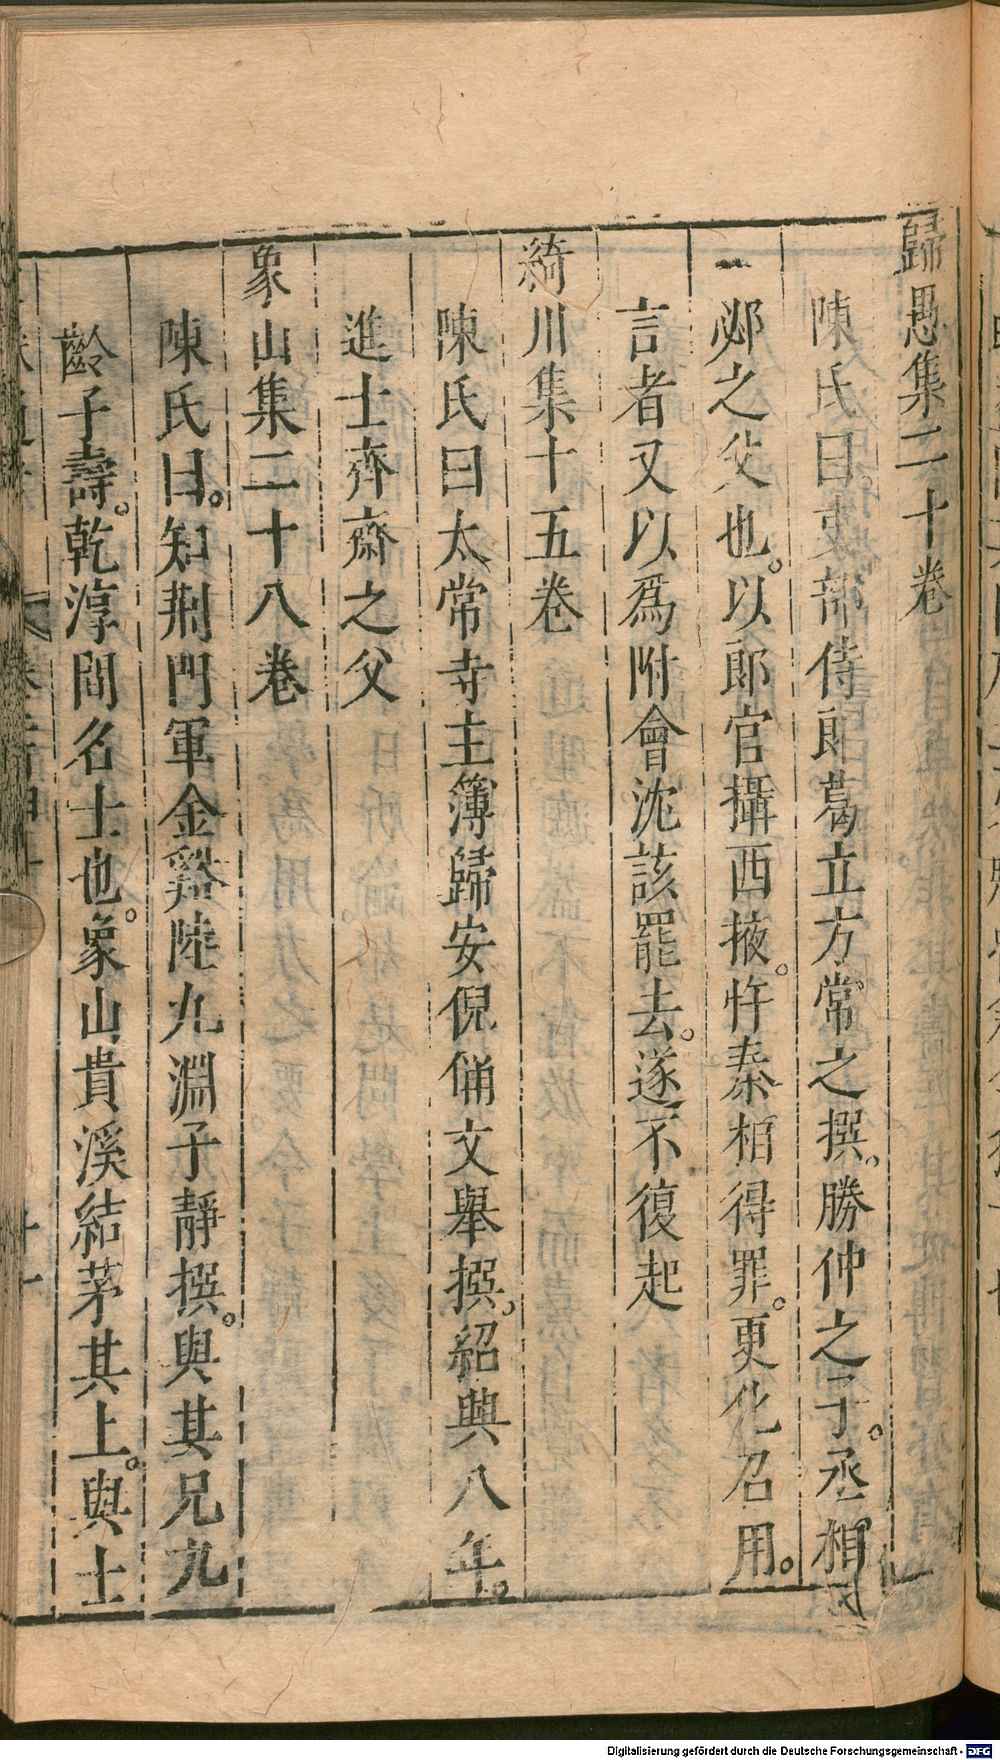 歸愚集二十卷
陳氏曰吏部侍郎葛立方常之撰。勝仲之子。丞相
邲之父也。以郎官攝西掖。忤秦相得罪。更化召用。
言者又以爲附會沈該罷去。遂不復起
綺川集十五卷
陳氏曰太常寺主簿歸安倪偁文舉撰。紹興八年。
進士齊齋之父
象山集二十八卷
陳氏曰。知荆門軍金谿陸九淵子靜撰。與其兄九
齡子壽。乾淳間名士也。象山貴溪結茅其上。與士
Digitalisierung gefördert durch die Deutsche Forschungsgemeinschaft - DFG